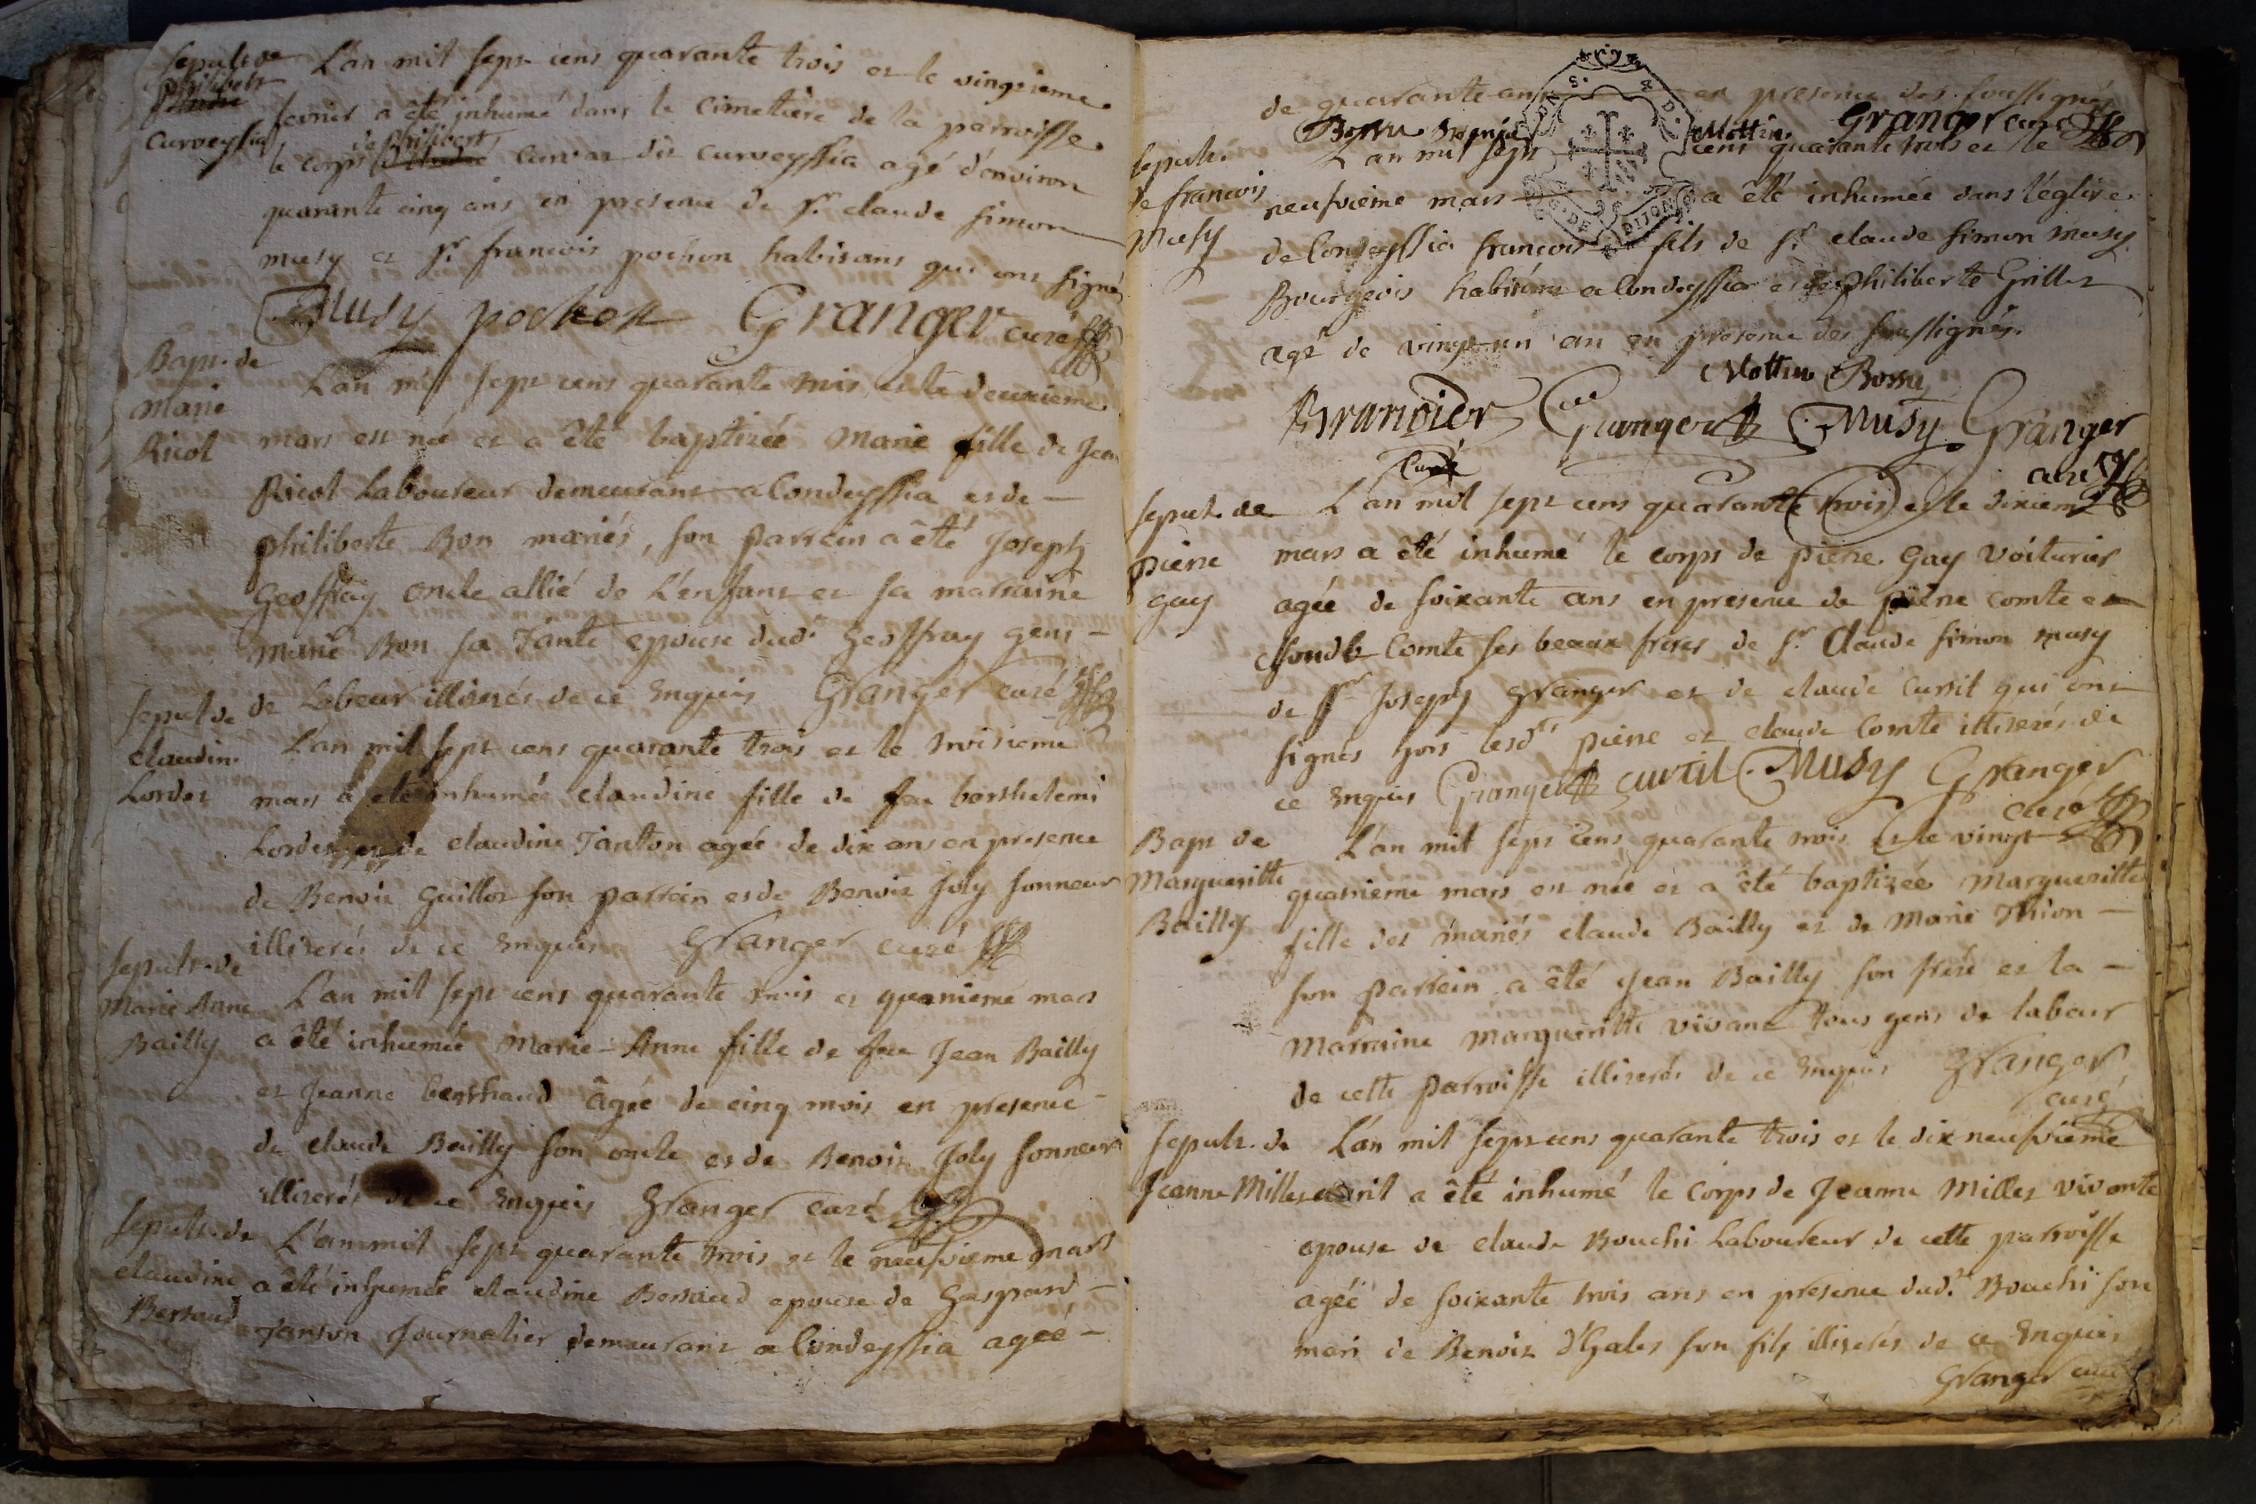 sepult. de
philibert
Curveyssia
L'an mil sept cens quarante trois et le vingtieme
fevrier a êté inhumé dans le cimetiere de la parroisse
le corps de philibert Curvat dit curveyssia agé d'environ
quarante cinq ans en presence de sr. claude simon
musy et sr. francois pochon habitans qui ont signé
Musy pochon Granger curé
Bapt. de
Marie
Ricol
L'an mil sept cens quarante trois et le deuxieme
mars est née et a êté baptizée Marie fille de Jean
Ricol Laboureur demeurant a Condeyssia et de
philiberte Bon mariés, son parrein a êté Joseph
Geoffray oncle allié de L'enfant et sa marraine
marie Bon sa Tante epouse dudt Geoffray gens
de Labeur illiterés de ce Enquis Granger curé
sepult de
claudine
Lordet
L'an mil sept cens quarante trois et le troisieme
mars a eté inhumée claudine fille de feu barthelemi
Lordet et de claudine Tanton agée de dix ans en presence
de Benoit Guillot son parrein et de Benoit Joly sonneur
illiterés de ce Enquis Granger curé
sepult. de
Marie Anne
Bailly
L'an mil sept cens quarante trois et quatrieme mars
a êté inhumée Marie-Anne fille de feu Jean Bailly
et Jeanne berthaud âgée de cinq mois en presence
de claude Bailly son oncle et de Benoit Joly sonneur
illiterés de ce Enquis Granger curé
sepult. de
claudine
Bersaud
L'an mil sept quarante trois et le neufvieme mars
a êté inhumée claudine Bersaud epouse de Gaspard
Janton Journalier demeurant a Condeyssia agée
de quarante ans en presence des soussignés
Bossu Mottin Granger curé
sepult.
de francois
Musy
L'an mil sept cens quarante trois et le
neufvieme mars a êté inhumée dans l'église
de Condeyssia françois fils de sr. claude simon musy
Bourgeois habitant a Condeyssia et de philiberte Grillet
agé de vingt un an en presence des soussignés.
Mottin Bossu
Brandier Granger Musy Granger
Curé
curé
sepult. de
pierre
gay
L'an mil sept cens quarante trois et le dixieme
mars a êté inhumé le corps de pierre Gay voiturier
agée de soixante ans en presence de pierre comte et
claude Comte ses beaux freres de sr. Claude simon musy
de sr Joseph Granger et de claude curtil qui ont
signés hors lesdts pierre et claude Comte illiterés de
ce Enquis Granger curtil Musy Granger
curé
Bapt de
Margueritte
Bailly
L'an mil sept cens quarante trois et le vingt
quatrieme mars est née et a êté baptizée Margueritte
fille des mariés claude Bailly et de Marie Thion
son parrein a êté Jean Bailly son frere et la
marraine Margueritte vivant tous gens de labeur
de cette parroisse illiterés de ce Enquis Granger
curé
sepult. de
Jeanne Millet
L'an mil sept cens quarante trois et le dix neufvieme
avril a êté inhumé le corps de Jeanne Millet vivante
epouse de claude Bouchi Laboureur de cette parroisse
agée de soixante trois ans en presence dudt. Bouchi son
mari de Benoit son fils illiterés de ce Enquis
Granger curé